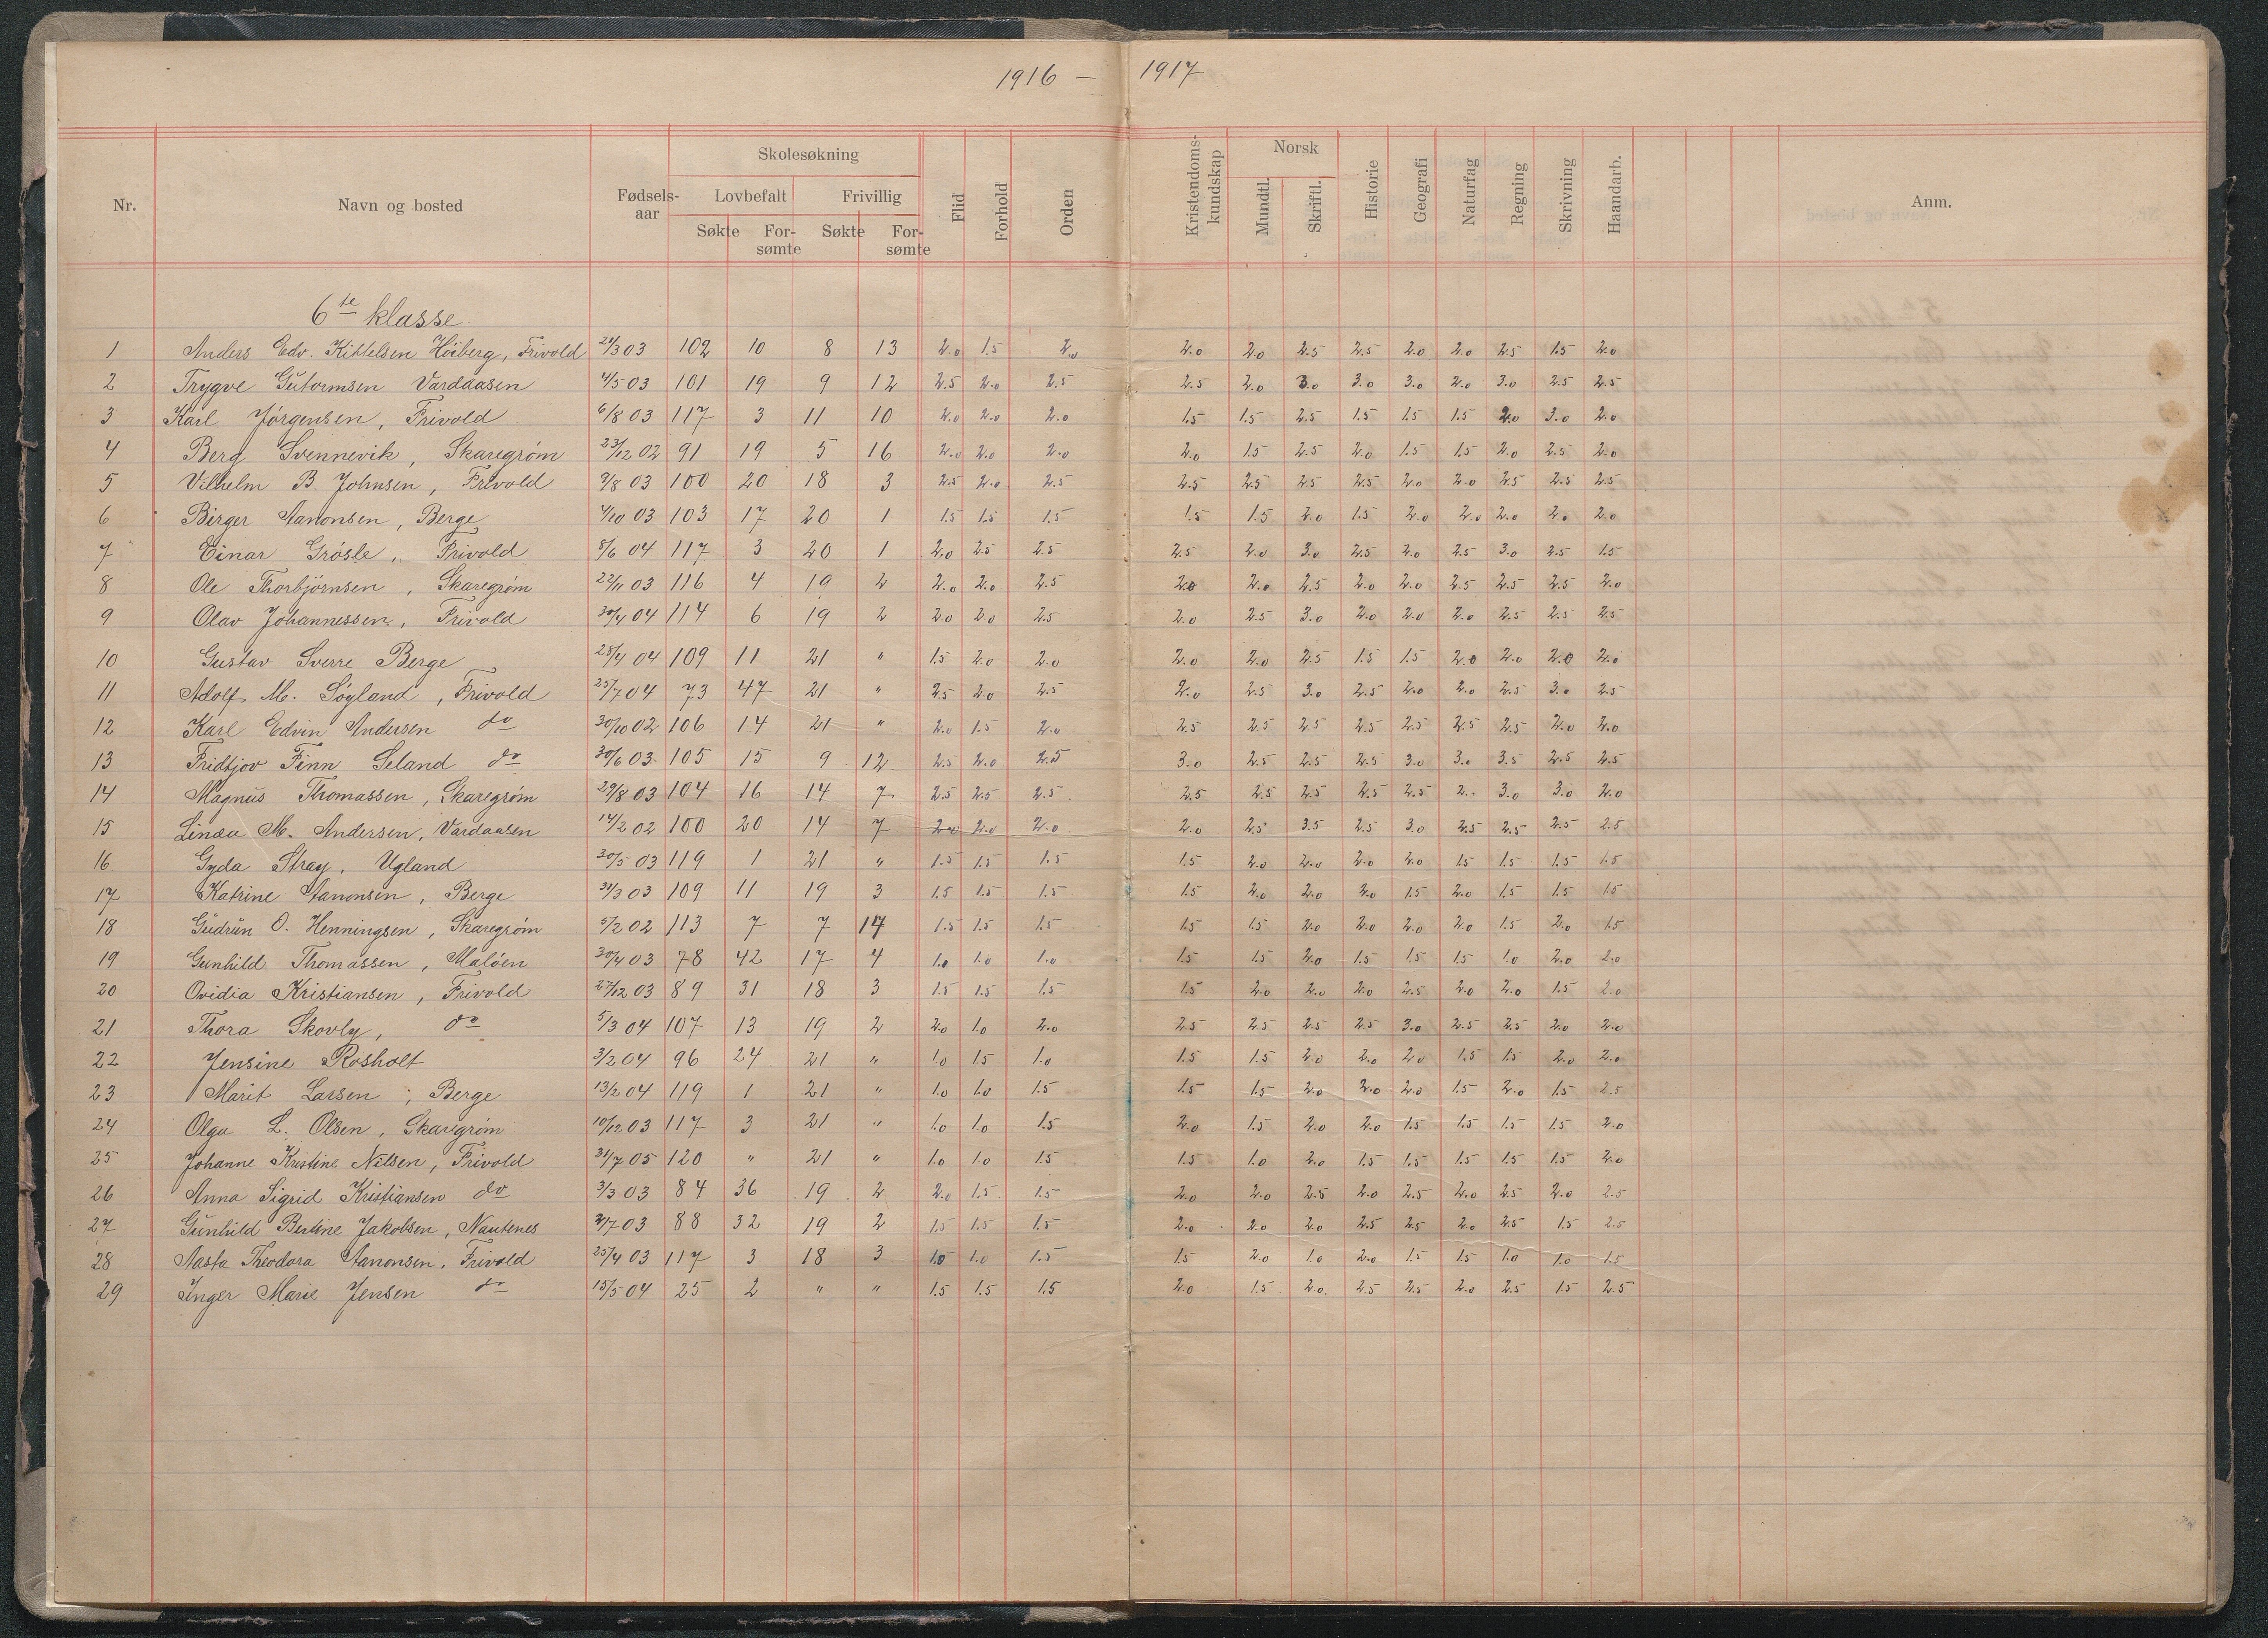 1916 – 1917
Nr. Navn og bosted Fødsels-aar Skolesøkning Lovbefalt Søkte For-sømte Frivillig Søkte For-sømte Flid Forhold Orden Kristendoms-kundskap Norsk Mundtl. Skriftl. Historie Geografi Naturfag Regning Skrivning Haandarb. Anm.
6te klasse
1 Anders Edv. Kittelsen Höiberg, Frivold 24/3 03 102 10 8 13 2.0 1.5 2.0 2.0 2.0 2.5 2.5 2.0 2.0 2.5 1.5 2.0
2 Trygve Gutormsen Vardaasen 4/5 03 101 19 9 12 2.5 2.0 2.5 2.5 2.0 3.0 3.0 3.0 2.0 3.0 2.5 2.5
3 Karl Jörgensen, Frivold 6/8 03 117 3 11 10 2.0 2.0 2.0 1.5 1.5 2.5 1.5 1.5 1.5 2.0 3.0 2.0
4 Berg Svennevik, Skaregrøm 23/12 02 91 19 5 16 2.0 2.0 2.0 2.0 1.5 2.5 2.0 1.5 1.5 2.0 2.5 2.0
5 Vilhelm B. Johnsen, Frivold 9/8 03 100 20 18 3 2.5 2.0 2.5 2.5 2.5 2.5 2.5 2.0 2.0 2.5 2.5 2.5
6 Birger Aanonsen, Berge 4/10 03 103 17 20 1 1.5 1.5 1.5 1.5 1.5 2.0 1.5 2.0 2.0 2.0 2.0 2.0
7 Einar Grösle, Frivold 8/6 04 117 3 20 1 2.0 2.5 2.5 2.5 2.0 3.0 2.5 2.0 2.5 3.0 2.5 1.5
8 Ole Thorbjörnsen, Skaregrøm 22/11 03 116 4 19 2 2.0 2.0 2.5 2.0 2.0 2.5 2.0 2.0 2.5 2.5 2.5 2.0
9 Olav Johannessen, Frivold 30/4 04 114 6 19 2 2.0 2.0 2.5 2.0 2.5 3.0 2.0 2.0 2.0 2.5 2.5 2.5
10 Gustav Sverre Berge 28/4 04 109 11 21 " 1.5 2.0 2.0 2.0 2.0 2.5 1.5 1.5 2.0 2.0 2.0 2.0
11 Adolf M. Søyland, Frivold 25/7 04 73 47 21 " 2.5 2.0 2.5 2.0 2.5 3.0 2.5 2.0 2.0 2.5 3.0 2.5
12 Karl Edvin Andersen do 30/10 02 106 14 21 " 2.0 1.5 2.0 2.5 2.5 2.5 2.5 2.5 2.5 2.5 2.0 2.0
13 Fridtjov Finn Seland do 30/6 03 105 15 9 12 2.5 2.0 2.5 3.0 2.5 2.5 2.5 3.0 3.0 3.5 2.5 2.5
14 Magnus Thomassen, Skaregrøm 29/8 03 104 16 14 7 2.5 2.5 2.5 2.5 2.5 2.5 2.5 2.5 2.. 3.0 3.0 2.0
15 Linda M. Andersen, Vardaasen 14/2 02 100 20 14 7 2.0 2.0 2.0 2.0 2.5 3.5 2.5 3.0 2.5 2.5 2.5 2.5
16 Gyda Stray, Ugland 30/5 03 119 1 21 " 1.5 1.5 1.5 1.5 2.0 2.0 2.0 2.0 1.5 1.5 1.5 1.5
17 Katrine Aanonsen, Berge 31/3 03 109 11 19 3 1.5 1.5 1.5 1.5 2.0 2.0 2.0 1.5 2.0 1.5 1.5 1.5
18 Gudrun O. Henningsen, Skaregrøm 5/2 02 113 7 7 14 1.5 1.5 1.5 1.5 1.5 2.0 2.0 2.0 2.0 1.5 2.0 1.5
19 Gunhild Thomassen, Malöen 30/4 03 78 42 17 4 1.0 1.0 1.0 1.5 1.5 2.0 1.5 1.5 1.5 1.0 2.0 2.0
20 Ovidia Kristiansen, Frivold 27/12 03 89 31 18 3 1.5 1.5 1.5 1.5 2.0 2.0 2.0 2.5 2.0 2.0 1.5 2.0
21 Thora Skovly, do 5/3 04 107 13 19 2 2.0 1.0 2.0 2.5 2.5 2.5 2.5 3.0 2.5 2.5 2.0 2.0
22 Jensine Rosholt 3/2 04 96 24 21 " 1.0 1.5 1.0 1.5 1.5 2.0 2.0 2.0 1.5 1.5 2.0 2.0
23 Marit Larsen, Berge 13/2 04 119 1 21 " 1.0 1.0 1.5 1.5 1.5 2.0 2.0 2.0 1.5 2.0 1.5 2.5
24 Olga L. Olsen, Skaregrøm 10/12 03 117 3 21 " 1.0 1.0 1.5 2.0 1.5 2.0 2.0 1.5 1.5 1.5 1.5 2.0
25 Johanne Kristine Nilsen, Frivold 31/7 05 120 " 21 " 1.0 1.0 1.5 1.5 1.0 2.0 1.5 1.5 1.5 1.5 1.5 2.0
26 Anna Sigrid Kristiansen do 3/3 03 84 36 19 2 2.0 1.5 1.5 2.0 2.0 2.5 2.0 2.5 2.0 2.5 2.0 2.5
27 Gunhild Bertine Jakobsen, Nautenes 2/7 03 88 32 19 2 1.5 1.5 1.5 2.0 2.0 2.0 2.5 2.5 2.0 2.5 1.5 2.5
28 Aasta Theodora Aanonsen, Frivold 25/4 03 117 3 18 3 1.0 1.0 1.5 1.5 2.0 1.0 2.0 1.5 1.5 1.0 1.0 1.5
29 Inger Marie Jensen do 15/5 04 25 2 " " 1.5 1.5 1.5 2.0 1.5 2.0 2.5 2.5 2.0 2.5 1.5 2.5